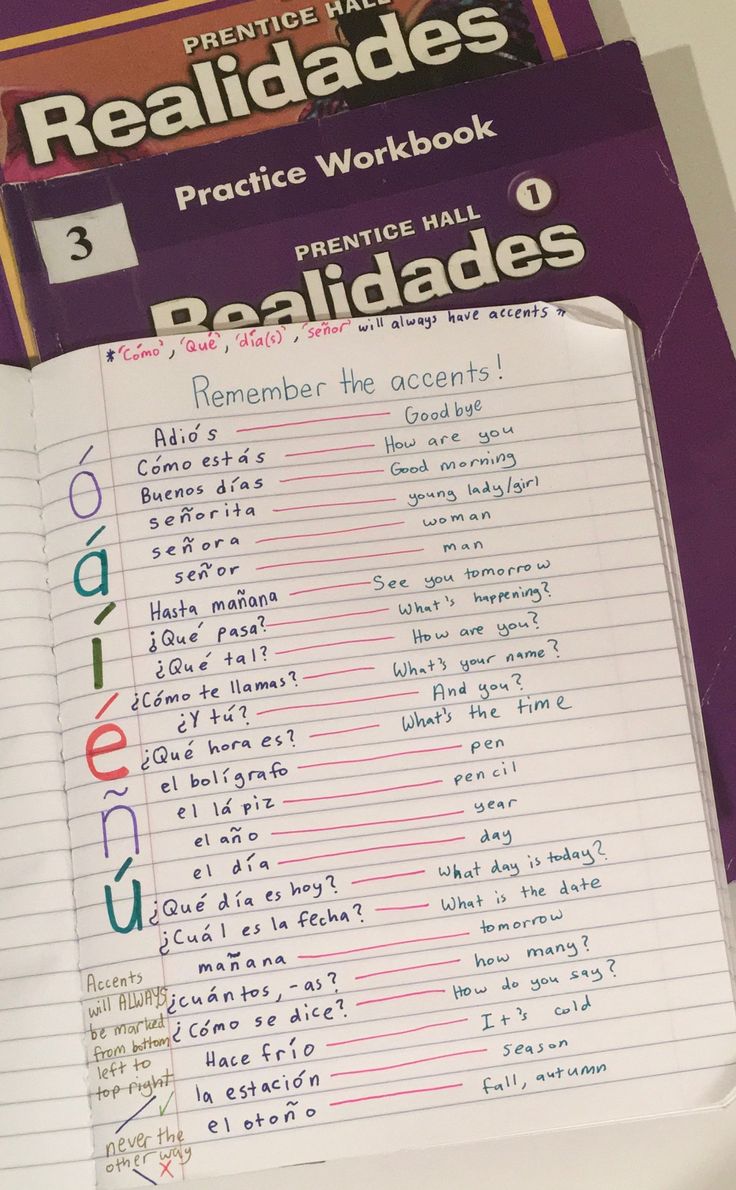 PRENTICE HALL
Realidades
Practice Workbook
3
1
PRENTICE HALL
Realidades
*'Cómo', 'Qué', 'día(s)', 'señor' will always have accents
Remember the accents!
Adiós Goodbye
Cómo estás How are you
Buenos días Good morning
señorita young lady/girl
señora woman
señor man
Hasta mañana See you tomorrow
¿Qué pasa? What's happening?
¿Qué tal? How are you?
¿Cómo te llamas? What's your name?
¿Y tú? And you?
¿Qué hora es? What's the time
el bolígrafo pen
el lápiz pencil
el año year
el día day
¿Qué día es hoy? What day is today?
¿Cuál es la fecha? What is the date
mañana tomorrow
¿cuántos, -as? how many?
¿Cómo se dice? How do you say?
Hace frío It's cold
la estación season
el otoño fall, autumn
ó
á
í
é
ñ
ú
Accents
will ALWAYS
be marked
from bottom
left to
top right
never the
other way